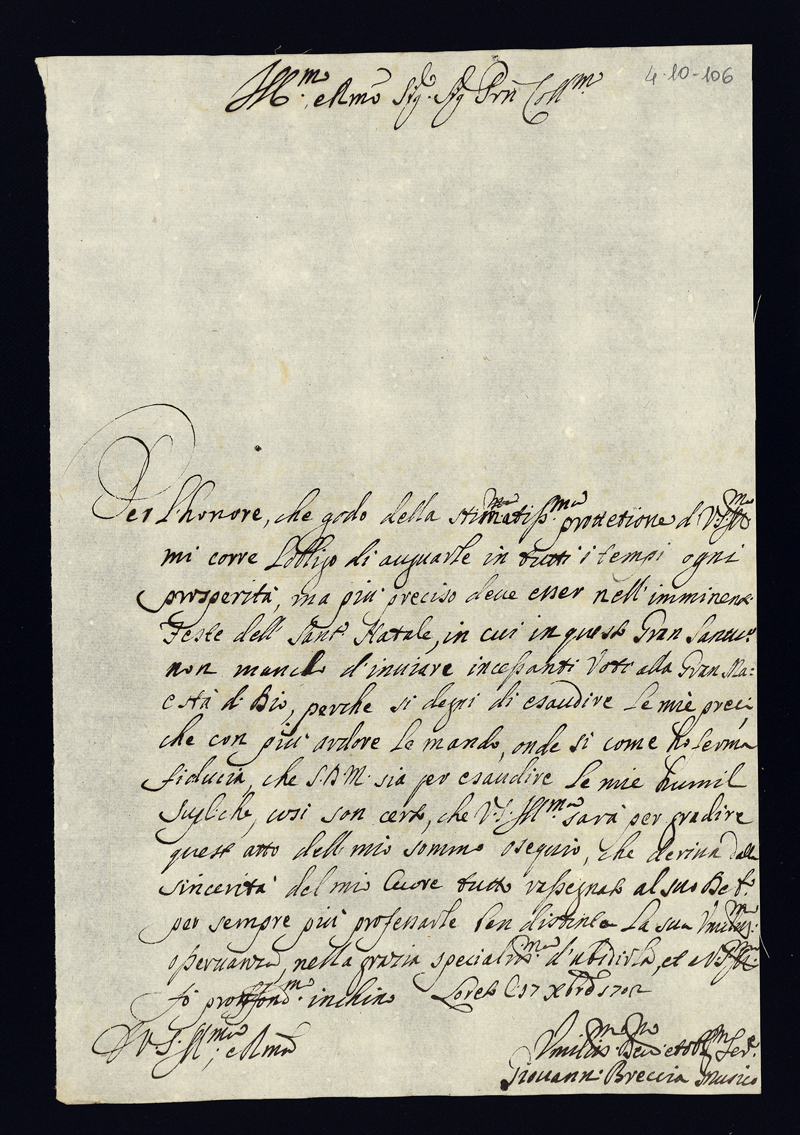 4-10-106
Ill.mo e Rmo Sig. Sig Prn Coll.mo
Per l'honore, che godo della stimatiss.ma protetione d V.S. Ill.ma
mi corre l'obligo di augurarle in tutti i tempi ogni
prosperità, ma più preciso deve esser nell'imminenti
Feste dell Sant.o Natale, in cui in questo Gran Santu.o
non manco d'inuiare incessanti Voti alla Gran Ma=
està di Dio, perche si degni di esaudire le mie preci,
che con più ardore le mando, onde si come hò ferma
fiducia, che S.D.M. sia per esaudire le mie humil
supliche, così son certo, che V.S. Ill.ma sarà per gradire
questo atto dell mio sommo osequio, che deriua dalla
sincerità del mio Cuore tutto rassegnato al suo
per sempre più professarle con distinta la sua
osseruanza, nella grazia specialis.ma d'ubidirla, et a V.S. Ill.ma
fò proffond.m inchino Loreto li 17 Xbre 1702
D V.S. Ill.ma, e Rma
Vmiliss.mo Deu.mo et obl.mo Ser.e
Giouann: Breccia Musico